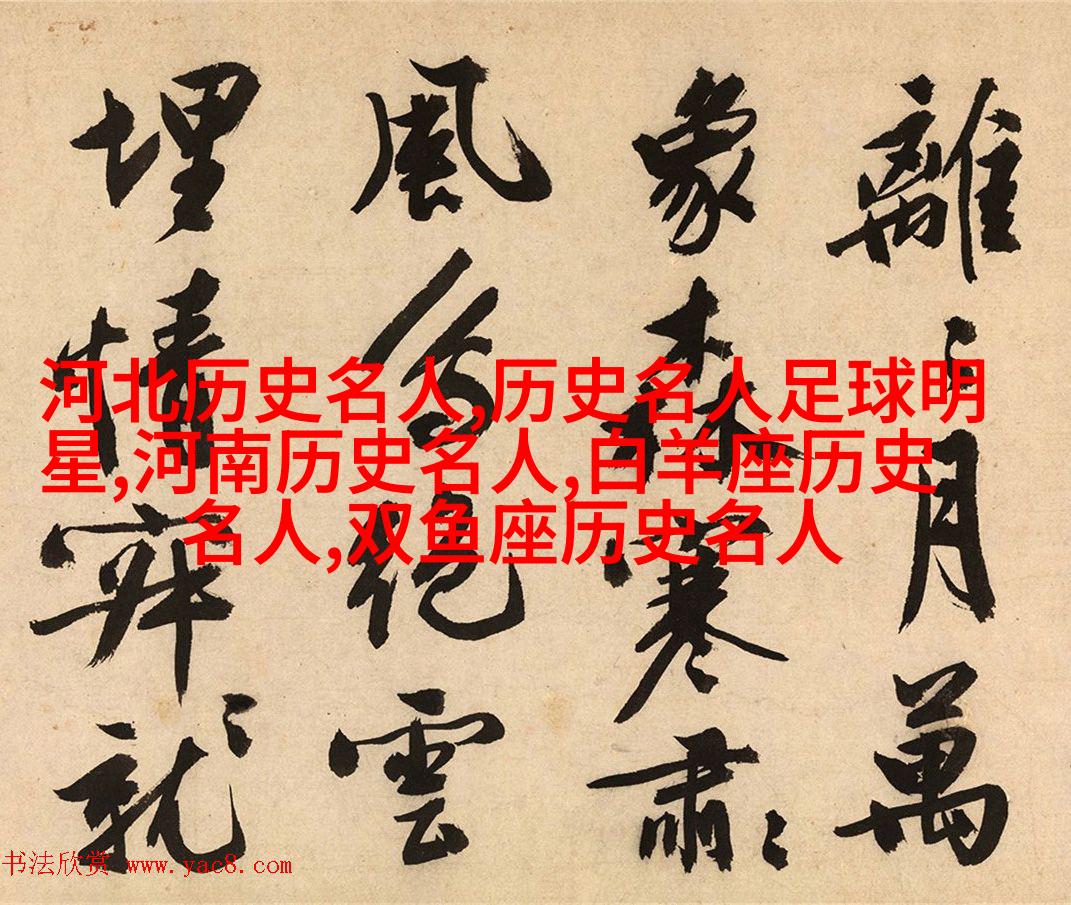 離〻月萬
象森寒肅〻
風絕雲
埋就〻
河北历史名人,历史名人足球明
星,河南历史名人,白羊座历史
名人,双鱼座历史名人
书法欣赏 www.yac8.com